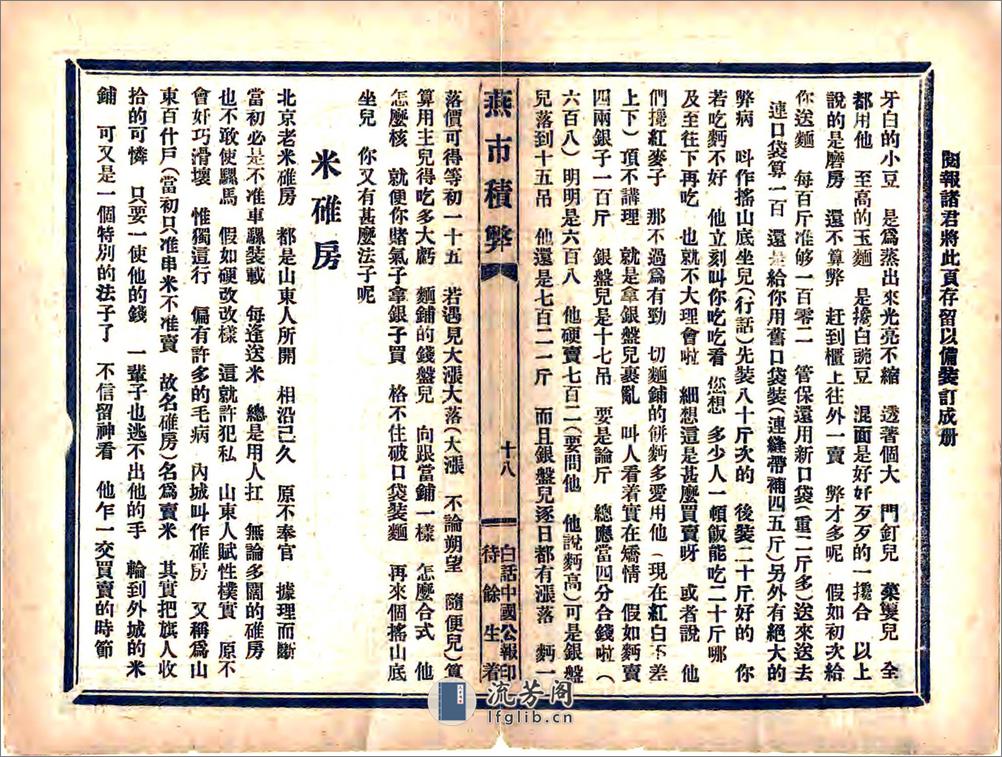 閱報諸君將此頁存留以備裝訂成册
牙白的小豆　是爲蒸出來光亮不縮　透著個大　門釘兒　藥雙兒　全
都用他　至高的玉麵　是攙白豌豆　混面是好好歹歹的一攙合　以上
說的是磨房　還不算弊　赶到櫃上往外一賣　弊才多呢　假如初次給
你送麵　每百斤准够一百零二　管保還用新口袋（重二斤多）送來送去
連口袋算一百　還是給你用舊口袋裝（連縫帶補四五斤）另外有絕大的
弊病　呌作搖山底坐兒（行話）先裝八十斤次的　後裝二十斤好的　你
若吃麪不好　他立刻叫你吃吃看　您想　多少人一頓飯能吃二十斤哪
及至往下再吃　也就不大理會啦　細想這是甚麼買賣呀　或者說　他
們攙紅麥子　那不過爲有勁　切麵鋪的餅麪多愛用他（現在紅白不差
上下）頂不講理　就是拿銀盤兒裹亂　叫人看着實在矯情　假如麪賣
四兩銀子一百斤　銀盤兒是十七吊　要是論斤　總應當四分合錢啦（
六百八）明明是六百八　他硬賣七百二（要問他　他說麪高）可是銀盤
兒落到十五吊　他還是七百二一斤　而且銀盤兒逐日都有漲落　麪一
燕市積弊
十八
白話中國公報印
待餘生着
落價可得等初一十五　若遇見大漲大落（大漲　不論朔望　隨便兒）算
算用主兒得吃多大虧　麵鋪的錢盤兒　向跟當鋪一樣　怎麼合式　他
怎麼核　就便你賭氣子拿銀子買　格不住破口袋裝麵　再來個搖山底
坐兒　你又有甚麼法子呢
米碓房
北京老米碓房　都是山東人所開　相沿已久　原不奉官　據理而斷
當初必是不准車騾裝載　每逢送米　總是用人扛　無論多闊的碓房
也不敢使騾馬　假如硬改改樣　這就許犯私　山東人賦性樸實　原不
會奸巧滑壞　惟獨這行　偏有許多的毛病　內城叫作碓房　又稱爲山
東百什戶（當初只准串米不准賣　故名碓房）名爲賣米　其實把旗人收
拾的可憐　只要一使他的錢　一輩子也逃不出他的手　輪到外城的米
鋪　可又是一個特別的法子了　不信留神看　他乍一交買賣的時節
流芳阁
lfglib.cn